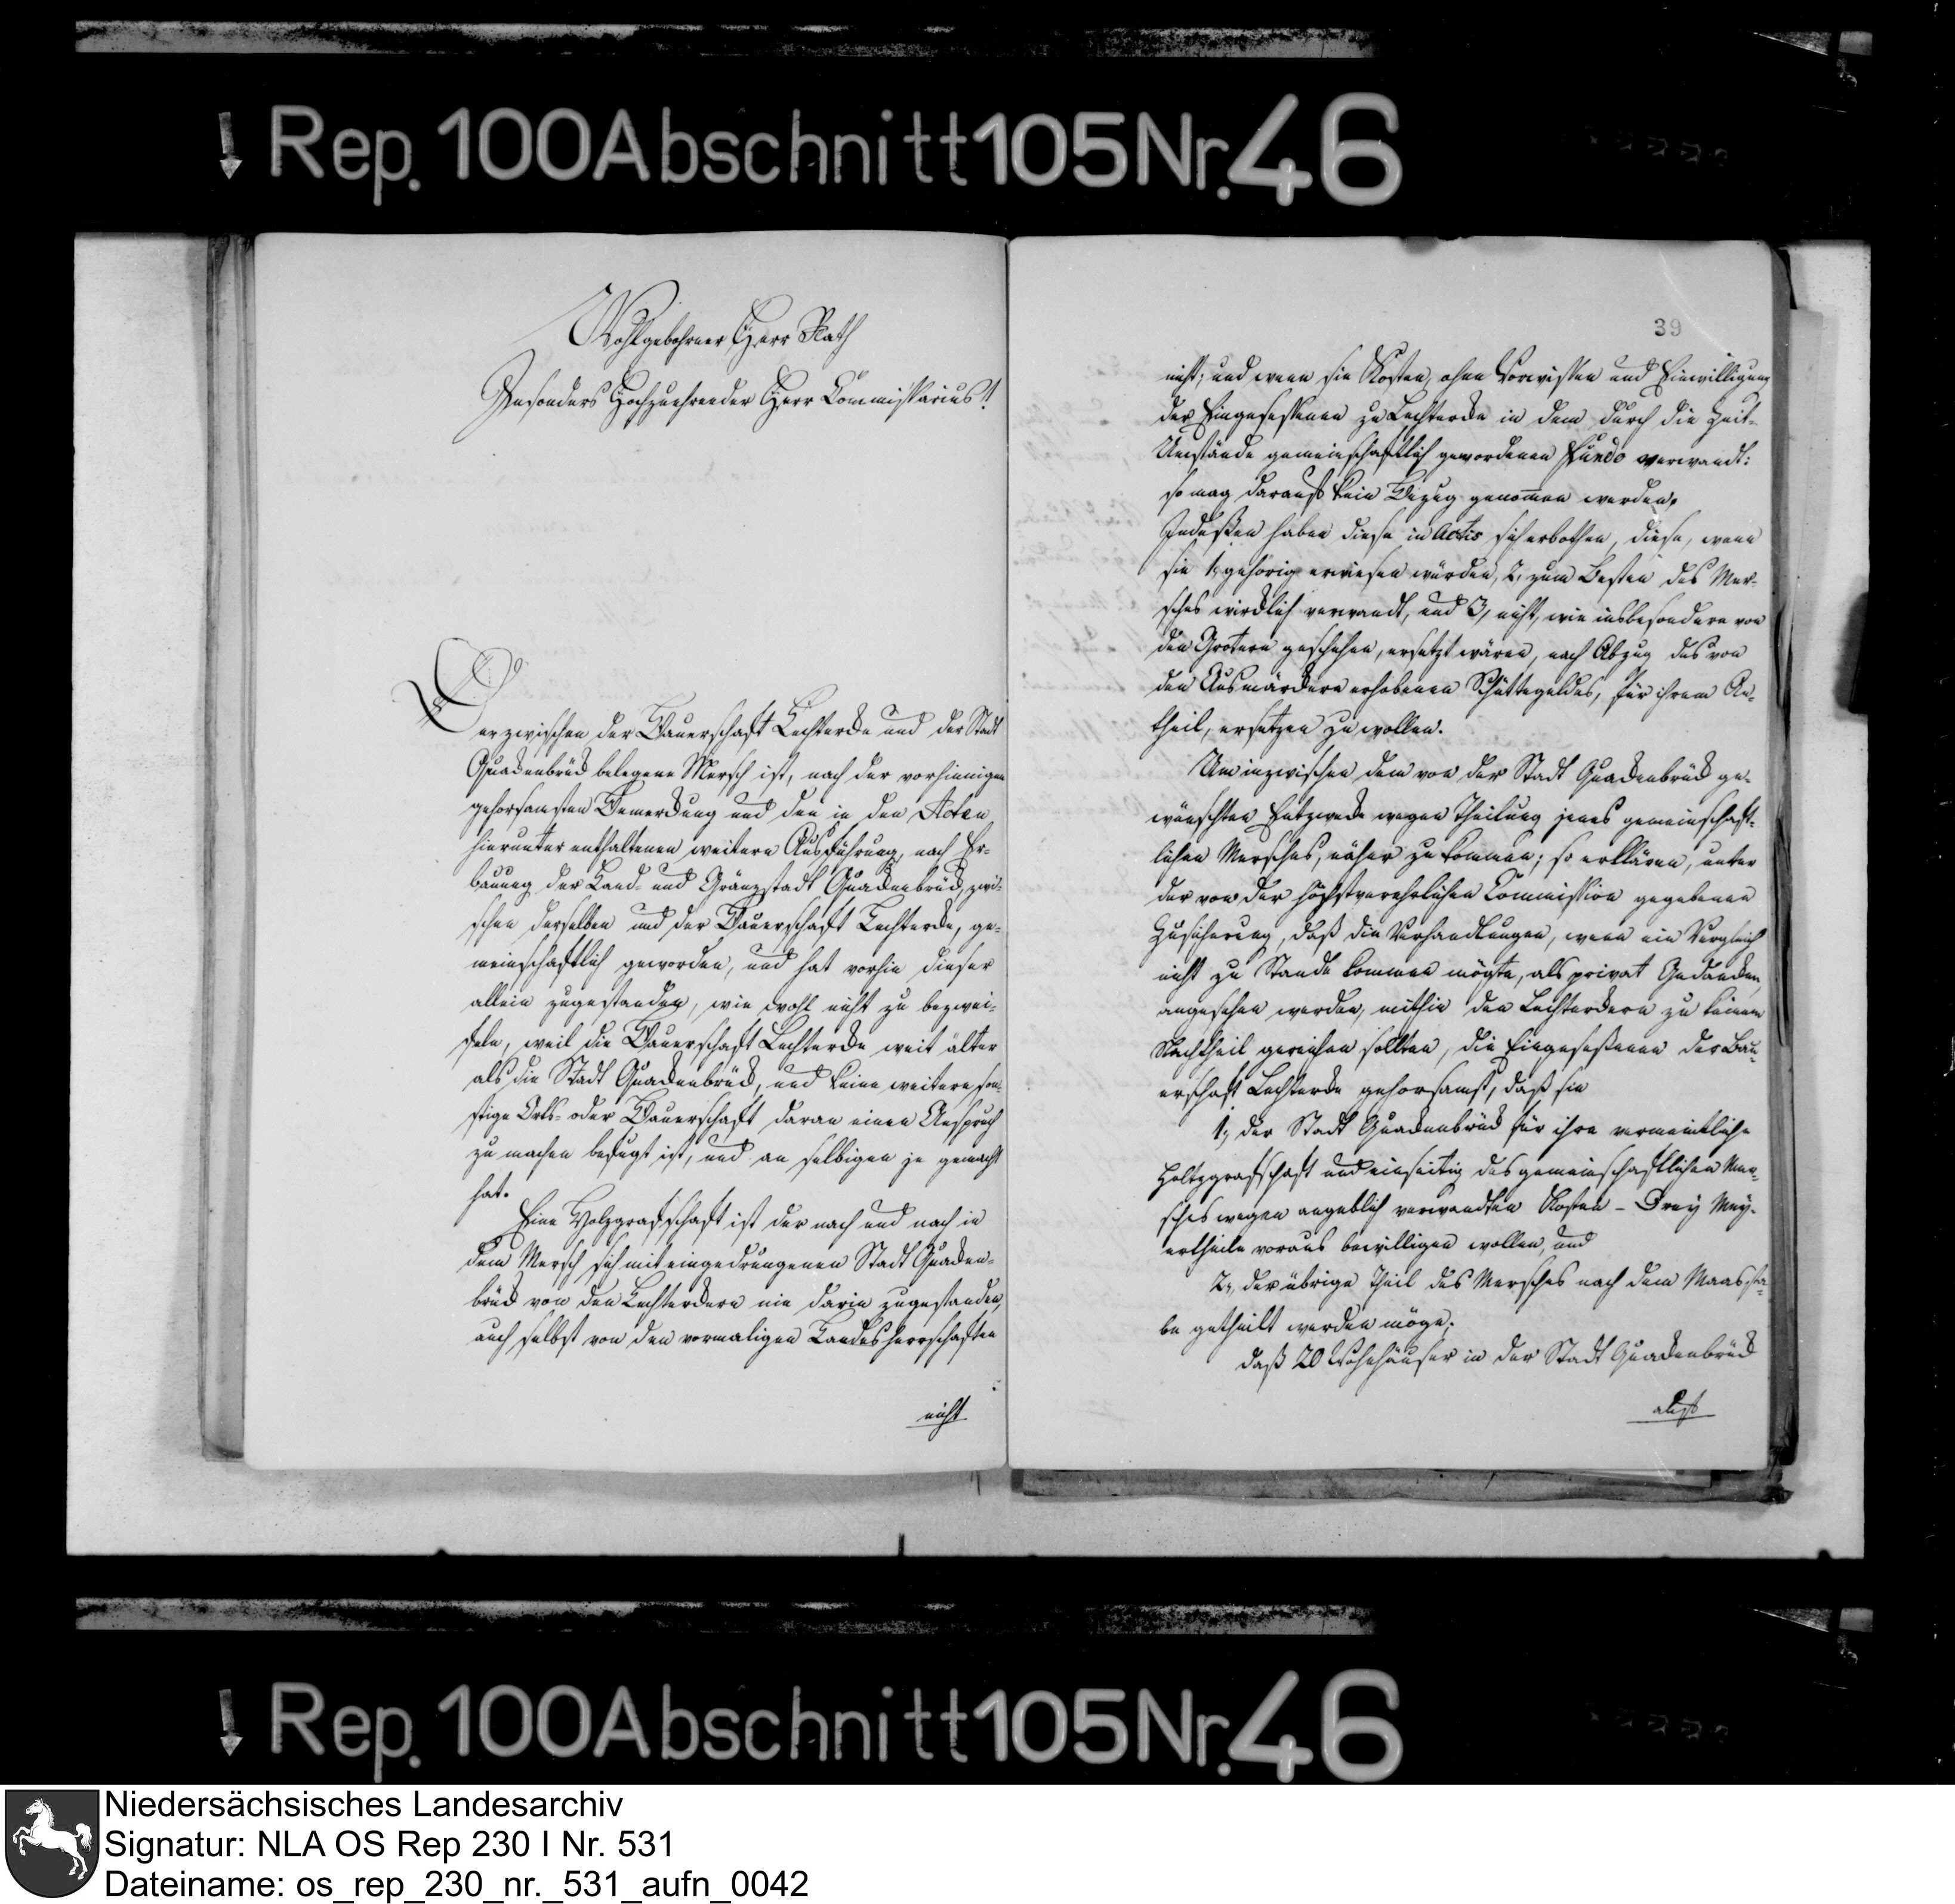 Rep. 100 Abschnitt 105 Nr. 46
Wohlgebohrner Herr Rath
Insonders Hochzuehrender Herr Commissarius!
Der zwischen der Bauerschaft Lechterke und der Stadt
Quackenbrück belegene Mersch ist, nach der vorhinnigen
gehorsamsten Bemerkung und den in den Acten
hierunter enthaltenen weitern Ausführung, nach Er-
bauung der Land- und Gränzstadt Quackenbrück, zwi-
schen derselben und der Bauerschaft Lechterke, ge-
meinschaftlich geworden, und hat vorhin dieser
allein zugestanden, wie wohl nicht zu bezwei-
feln, weil die Bauerschaft Lechterke weit älter
als die Stadt Quackenbrück, und keine weitere son-
stige Orts- oder Bauerschaft daran einen Anspruch
zu machen befugt ist, und an selbigen je gemacht
hat.
Eine Holzgrafschaft ist der nach und nach in
dem Mersch sich mit eingedrungenen Stadt Quacken-
brück von den Lechterkern nie darin zugestanden,
auch selbst von den vormaligen Landesherrschaften
nicht
39
nicht; und wenn sie Kosten, ohne Vorwissen und Einwilligung
der Eingesessenen zu Lechterke in dem durch die Zeit-
Umstände gemeinschaftlich gewordenen Fundo verwandt:
so mag daraus kein Bezug genommen werden.
Indeßen haben diese in Actis sich erbothen, diese, wenn
sie 1, gehörig erwiesen würden, 2, zum Besten des Mer-
sches wirklich verwandt, und 3, nicht, wie insbesondere von
den Grotern geschehen, ersetzt wären, nach Abzug des von
den Ausmärkern erhobenen Schüttegeldes, für ihrem An-
theil, ersetzen zu wollen.
Um inzwischen dem von der Stadt Quackenbrück ge-
wünschten Entzwecke wegen Theilung jenes gemeinschaft-
lichen Mersches, näher zu kommen; so erklären, unter
der von der höchstverehrlichen Commission gegebenen
Zusicherung, daß die Verhandlungen, wenn ein Vergleich
nicht zu Stande kommen mögte, als privat Gedanken
angesehen werden, mithin den Lechterkern zu keinem
Nachtheil gereichen sollten, die Eingeseßenen der Bau-
erschaft Lechterke gehorsamst, daß sie
1, der Stadt Quackenbrück für ihre vermeintliche
Holtzgrafschaft und einseitig des gemeinschaftlichen Mer-
sches wegen angeblich verwandten Kosten - Drey Mey-
ertheile voraus bewilligen wollen, und
2, der übrige Theil des Mersches nach dem Maassta-
be getheilt werden möge;
daß 20 Wohnhäuser in der Stadt Quackenbrück
Rep. 100 Abschnitt 105 Nr. 46
Niedersächsisches Landesarchiv
Signatur: NLA OS Rep 230 I Nr. 531
Dateiname: os_rep_230_nr._531_aufn_0042